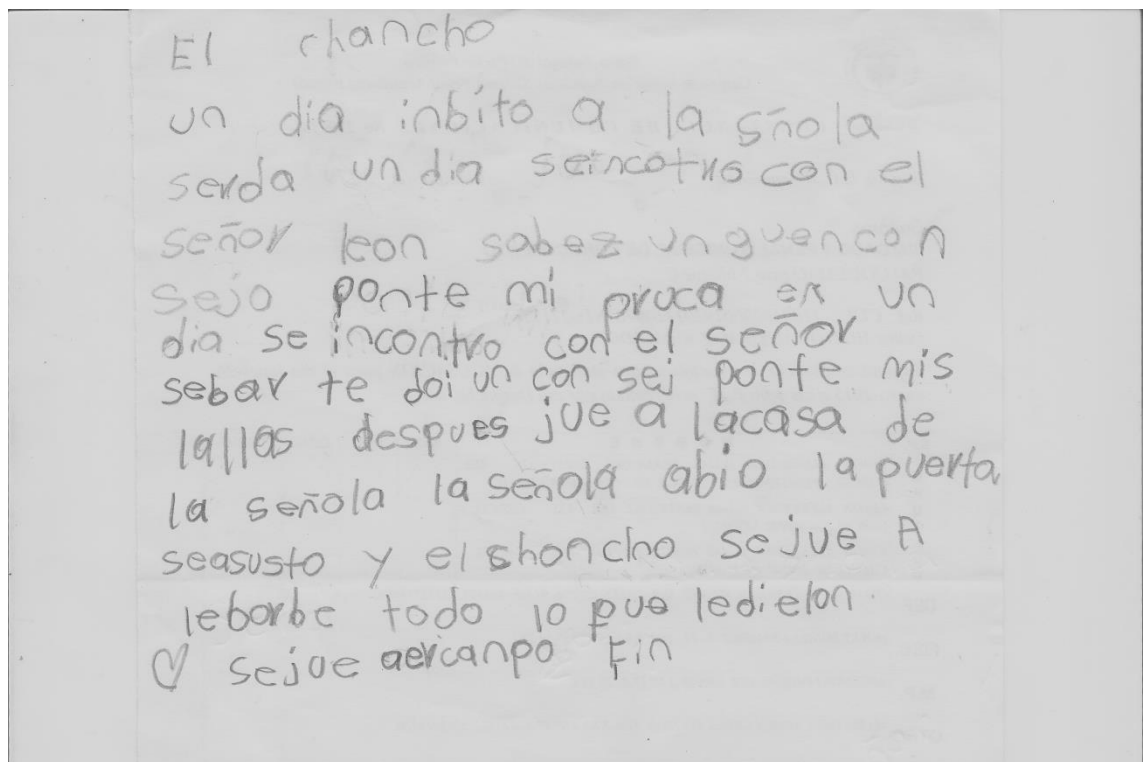 El chancho
un dia inbito a la sñola
serda un dia seincotro con el
señor leon sabez un guencon
sejo ponte mi pruca en un
dia se incontro con el señor
sebar te doi un con sej ponte mis
lallas despues jue a lacasa de
la señola la señola abio la puerta
seasusto y el shoncho se jue A
leborbe todo lo pue ledielon.
sejue aercanpo Fin